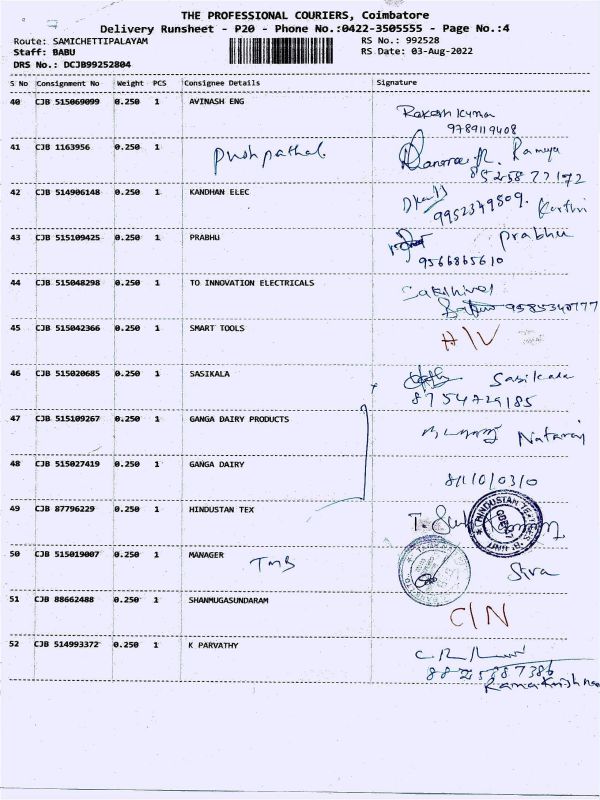 THE PROFESSIONAL COURIERS, Coimbatore
Delivery Runsheet - P20 - Phone No.:0422-3505555 - Page No.:4
Route: SAMICHETTIPALAYAM RS No.: 992528
Staff: BABU RS Date: 03-Aug-2022
DRS No.: DCJB99252804
S No Consignment No Weight PCS Consignee Details Signature
40 CJB 515069099 0.250 1 AVINASH ENG
Rakesh Kumar
9789119408
41 CJB 1163956 0.250 1
Pushpathal Ramya
42 CJB 514906148 0.250 1 KANDHAN ELEC
9952349509. Karthi
43 CJB 515109425 0.250 1 PRABHU
Prabhu
9566865610
44 CJB 515048298 0.250 1 TO INNOVATION ELECTRICALS
Sakthivel
9585340777
45 CJB 515042366 0.250 1 SMART TOOLS
H/V
46 CJB 515020685 0.250 1 SASIKALA
Sasikala
8754729185
47 CJB 515109267 0.250 1 GANGA DAIRY PRODUCTS
Nataraj
48 CJB 515027419 0.250 1 GANGA DAIRY
49 CJB 87796229 0.250 1 HINDUSTAN TEX
50 CJB 515019007 0.250 1 MANAGER
TMB
Siva
51 CJB 88662488 0.250 1 SHANMUGASUNDARAM
C/N
52 CJB 514993372 0.250 1 K PARVATHY
Ramakrishnan